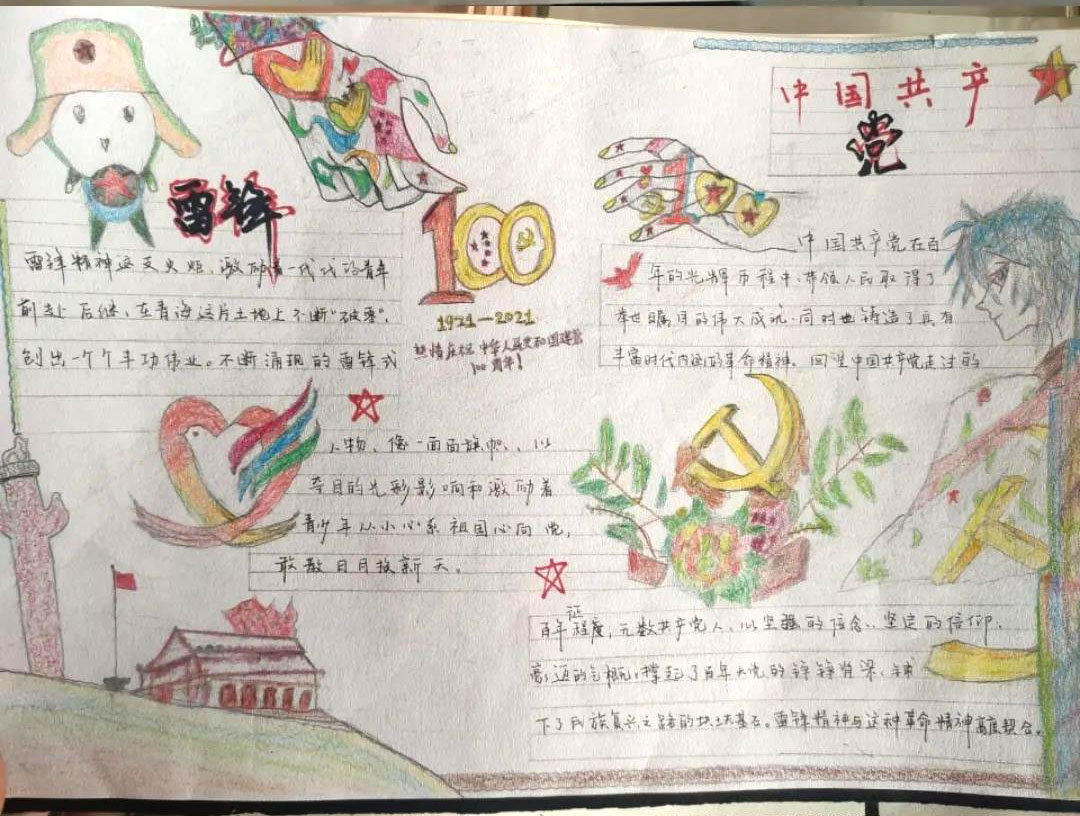 雷锋
雷锋精神这支火炬，激励着一代代的青年
前赴后继、在青海这片土地上不断"破零"，
创出一个个丰功伟业。不断涌现的雷锋式
人物、像一面面旗帜、以
夺目的光彩影响和激励着
青少年从小心系祖国心向党，
敢教日月换新天。
100
1921—2021
热情庆祝中华人民共和国建党
100周年！
中国共产
党
中国共产党在百
年的光辉历程中、带领人民取得了
举世瞩目的伟大成就、同时也铸造了具有
丰富时代内涵的革命精神。回望中国共产党走过的
百年征程，无数共产党人、以坚强的信念、坚定的信仰、
豪迈的气概，撑起了百年大党的铮铮脊梁、铺
下了民族复兴之路的块块基石。雷锋精神与这种革命精神高度契合。